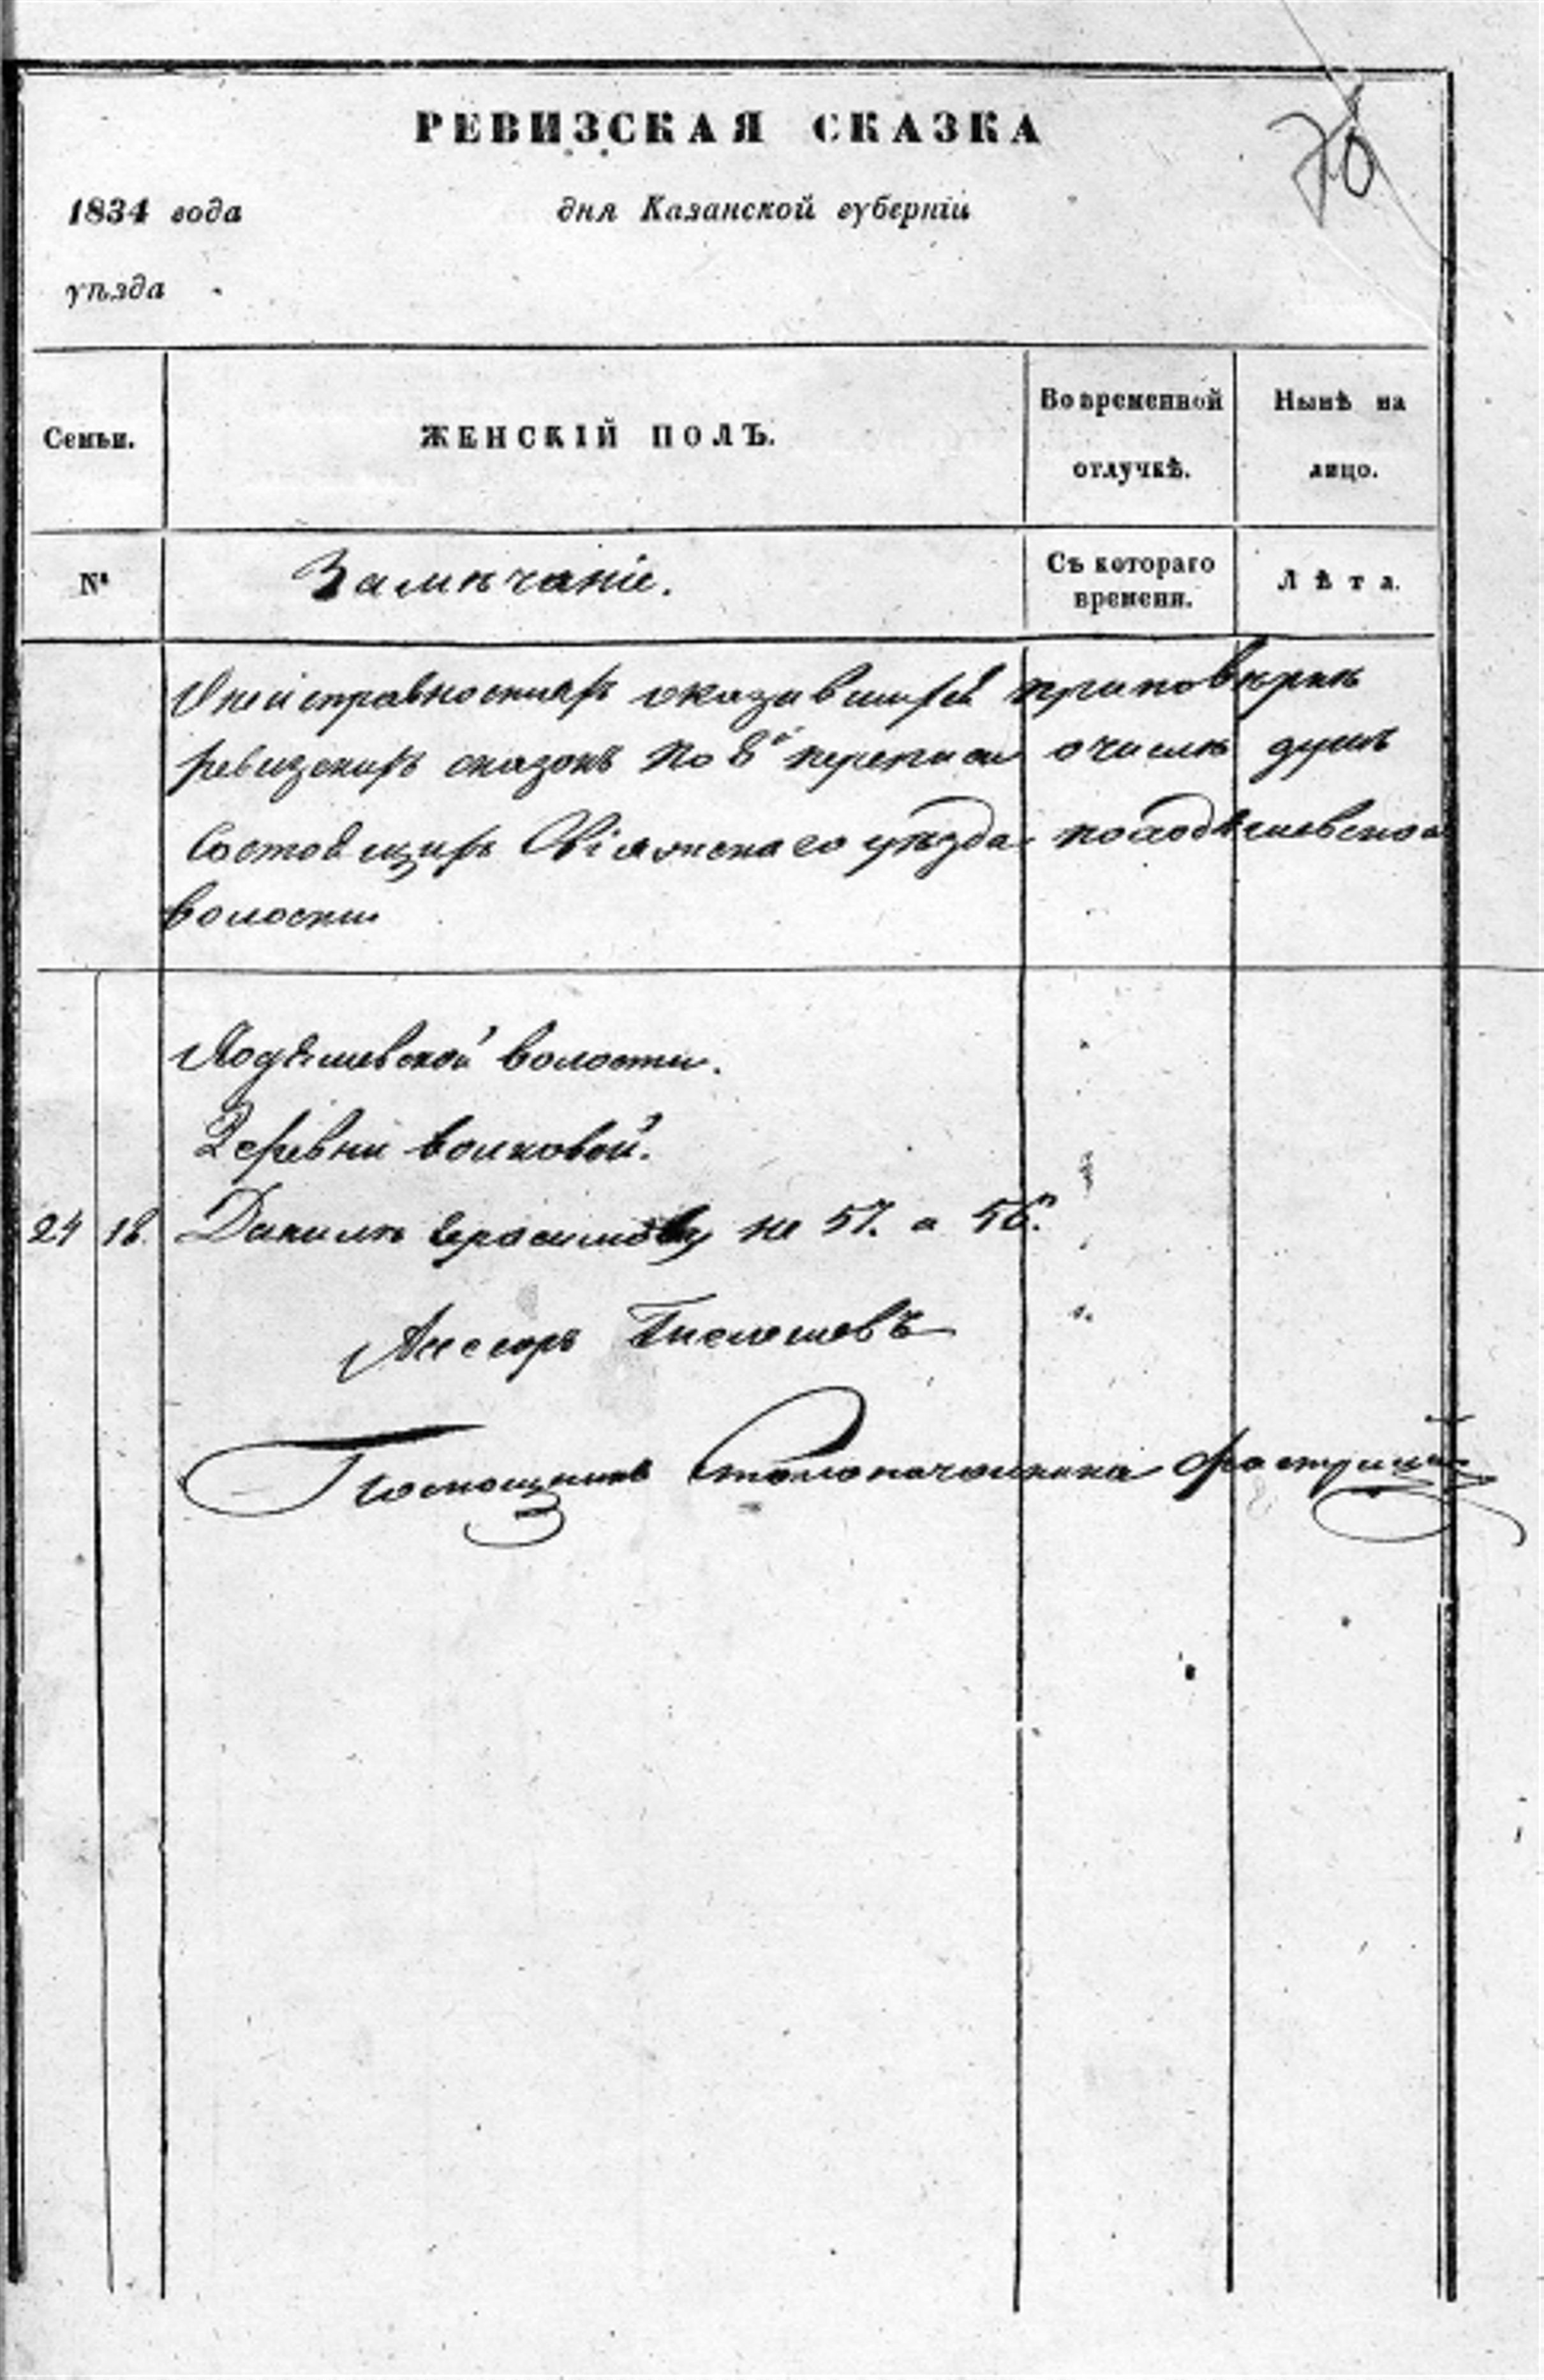 РЕВИЗСКАЯ СКАЗКА
1834 года дня Казанской губернiи
уѣзда
Семьи. ЖЕНСКIЙ ПОЛЪ. Во временной отлучкѣ. Нынѣ на лицо.
№ Замѣчанiе. Съ котораго времени. Лѣта.
О неисправностяхъ оказавшихся при повѣркѣ
ревизскихъ сказокъ по 8й переписи о числѣ душъ
состоящихъ Свiяжскаго уѣзда по
волости
волости.
Деревни Волковой.
24 18. Данилѣ Герасимову не 57. а 56.
Асессоръ
Помощникъ Столоначальника